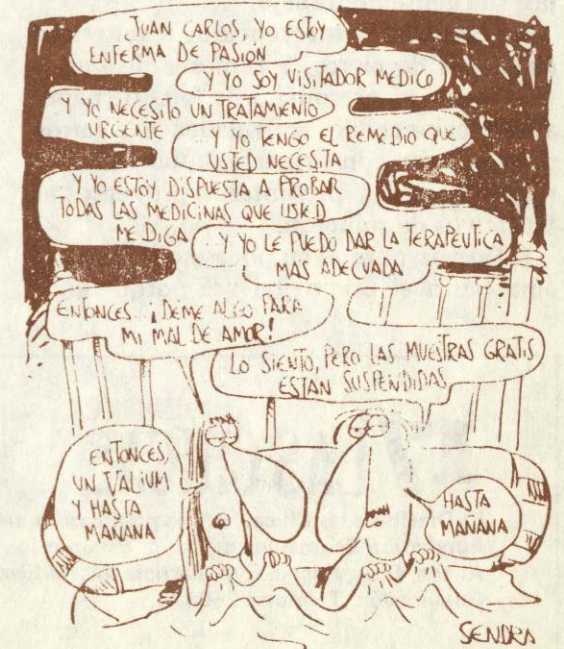 JUAN CARLOS, YO ESTOY
ENFERMA DE PASIÓN
Y YO SOY VISITADOR MEDICO
Y YO NECESITO UN TRATAMIENTO
URGENTE
Y YO TENGO EL REMEDIO QUE
USTED NECESITA
Y YO ESTOY DISPUESTA A PROBAR
TODAS LAS MEDICINAS QUE USTED
ME DIGA
Y YO LE PUEDO DAR LA TERAPEUTICA
MAS ADECUADA
ENTONCES... ¡DEME ALGO PARA
MI MAL DE AMOR!
LO SIENTO, PERO LAS MUESTRAS GRATIS
ESTAN SUSPENDIDAS
ENTONCES,
UN VALIUM
Y HASTA
MAÑANA
HASTA
MAÑANA
SENDRA